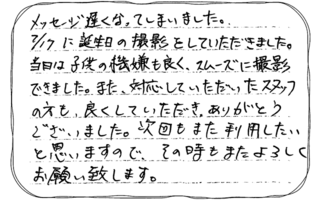 メッセージ遅くなってしまいました。
7/17に誕生日の撮影としていただきました。
当日は子供の機嫌も良く、スムーズに撮影
できました。また、対応していただいたスタッフ
の方も、良くしていただき、ありがとう
ございました。次回もまた利用したい
と思いますので、その時もまたよろしく
お願い致します。